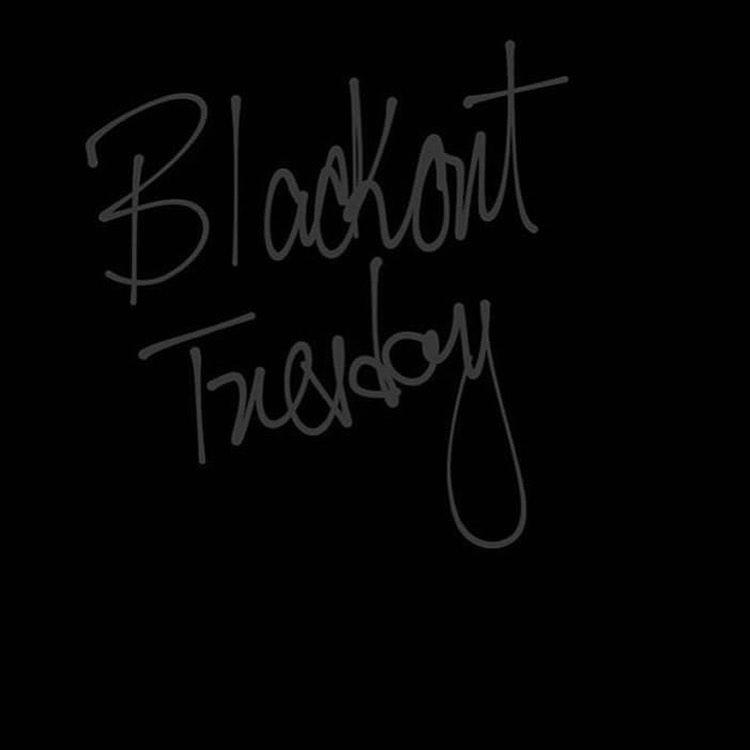 Blackout
Tuesday